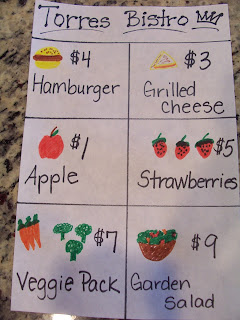 Torres Bistro
$4
Hamburger
$3
Grilled
Cheese
$1
Apple
$5
Strawberries
$7
Veggie Pack
$9
Garden
Salad